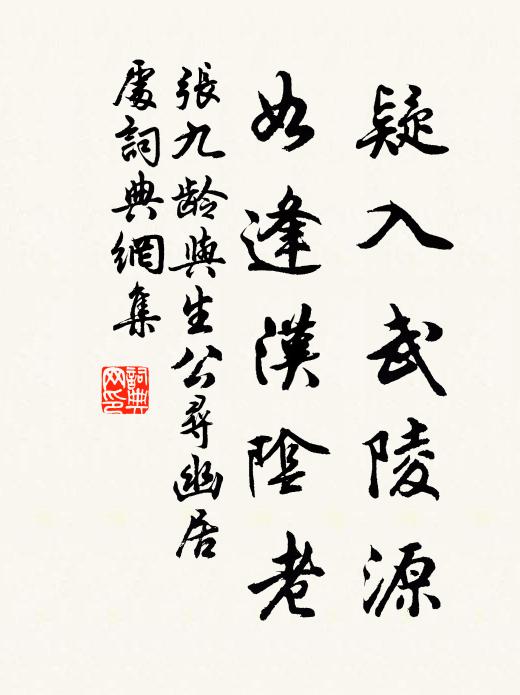 疑入武陵源
如逢漢陰老
張九齡與生公尋幽居
處詞典網集
詞典
网印